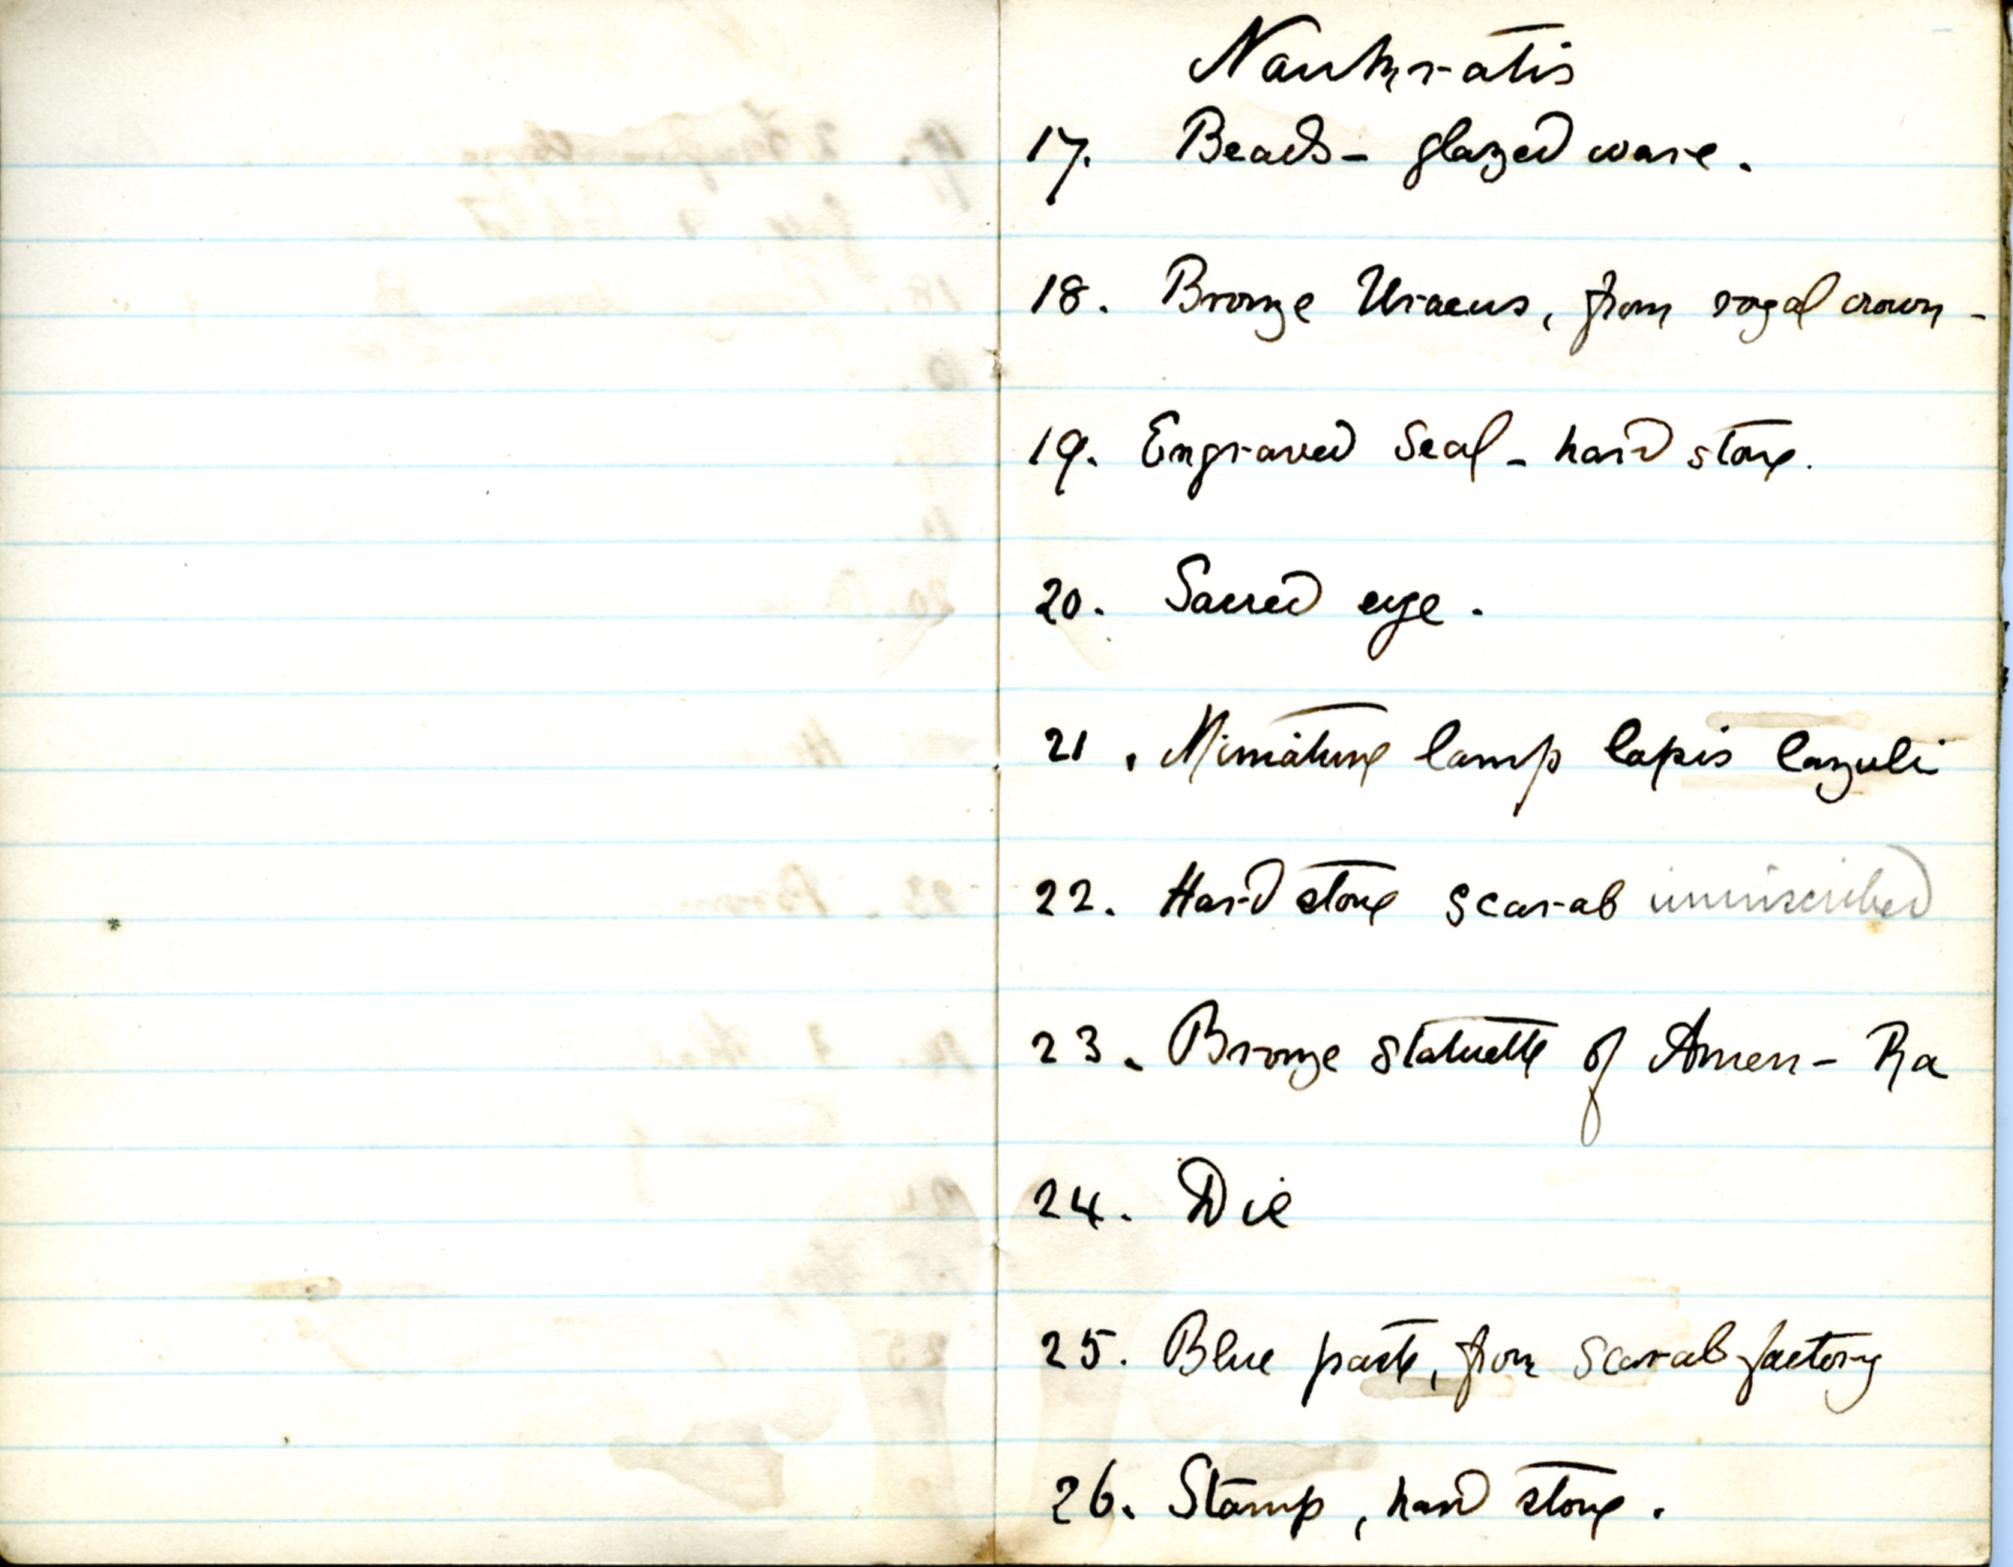 Naukratis
17. Beads - glazed ware.
18. Bronze Uraeus, from royal crown -
19. Engraved Seal - hard stone.
20. Sacred eye.
21. Miniature lamp lapis lazuli
22. Hard stone scarab uninscribed
23. Bronze statuette of Amen-Ra
24. Die
25. Blue paste, from scarab factory
26. Stamp, hard stone.